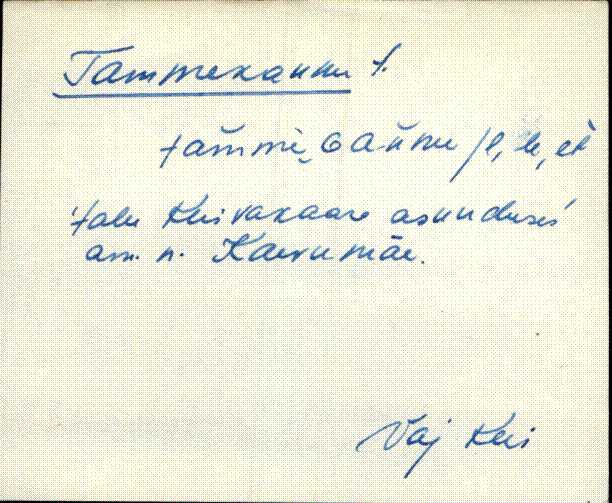 Tammekannu t.
tam̆mè, G ăn̆nu /l, le, et̀
talu Keisrakaare asunduses
am. n. Kaevumäe.
Vaj Kei